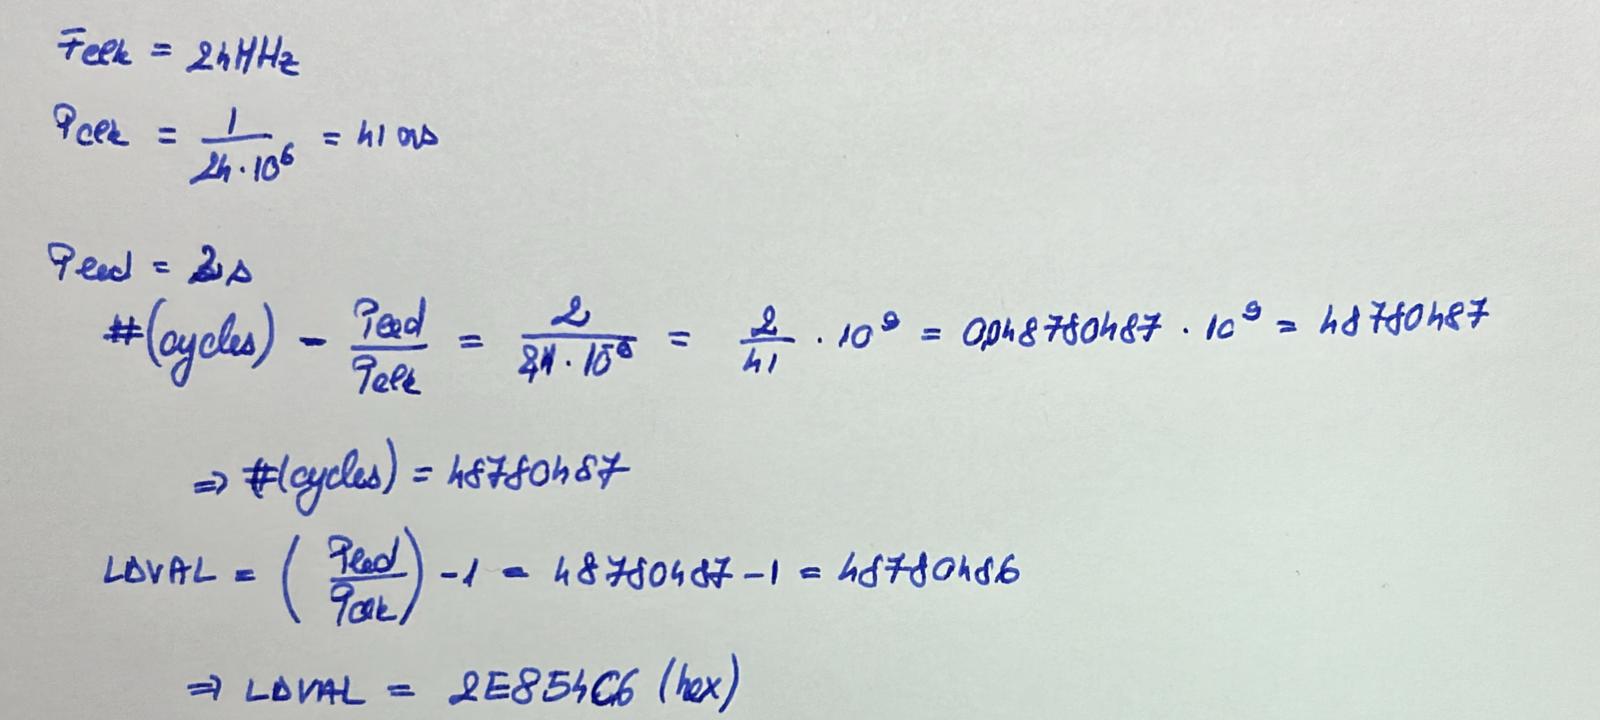 Fclk = 24MHz
Pclk = 1/(24·10^6) = 41 ns
Pled = 2s
#(cycles) - Pled/Pclk = 2/(41·10^-9) = 2/41 · 10^9 = 0,048780487 · 10^9 = 48780487
⇒ #(cycles) = 48780487
LDVAL = (Pled/Pclk) -1 = 48780487-1 = 48780486
⇒ LDVAL = 2E854C6 (hex)